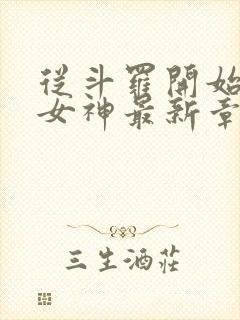 從斗羅開始
女神最新章
三生酒莊